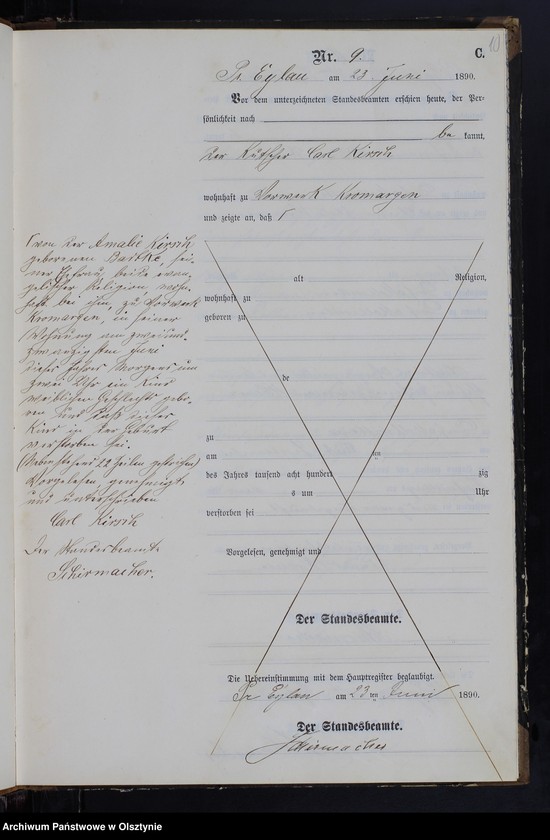 10
Nr. 9. C.
Pr. Eylau am 23. Juni 1890.
Vor dem unterzeichneten Standesbeamten erschien heute, der Per-
sönlichkeit nach
be kannt,
der Kutscher Carl Kirsch
wohnhaft zu Vorwerk Kromargen
und zeigte an, daß Γ
Γ von der Amalie Kirsch
geborenen Baitke, sei-
ner Ehefrau, beide evan-
gelischer Religion, wohn-
haft bei ihm, zu Vorwerk
Kromargen, in seiner
Wohnung am zweiund-
zwanzigsten Juni
dieses Jahres Morgens um
zwei Uhr ein Kind
weiblichen Geschlechts gebo-
ren und daß dieses
Kind in der Geburt
verstorben sei.
(Nebenstehend 22 Zeilen gestrichen)
Vorgelesen, genehmigt
und unterschrieben
Carl Kirsch
Der Standesbeamte
Schirmacher.
alt Religion,
wohnhaft zu
geboren zu
de
zu
am ten
des Jahres tausend acht hundert zig
s um Uhr
verstorben sei
Vorgelesen, genehmigt und
Der Standesbeamte.
Die Uebereinstimmung mit dem Hauptregister beglaubigt.
Pr Eylau am 23 ten Juni 1890.
Der Standesbeamte.
Schirmacher
Archiwum Państwowe w Olsztynie